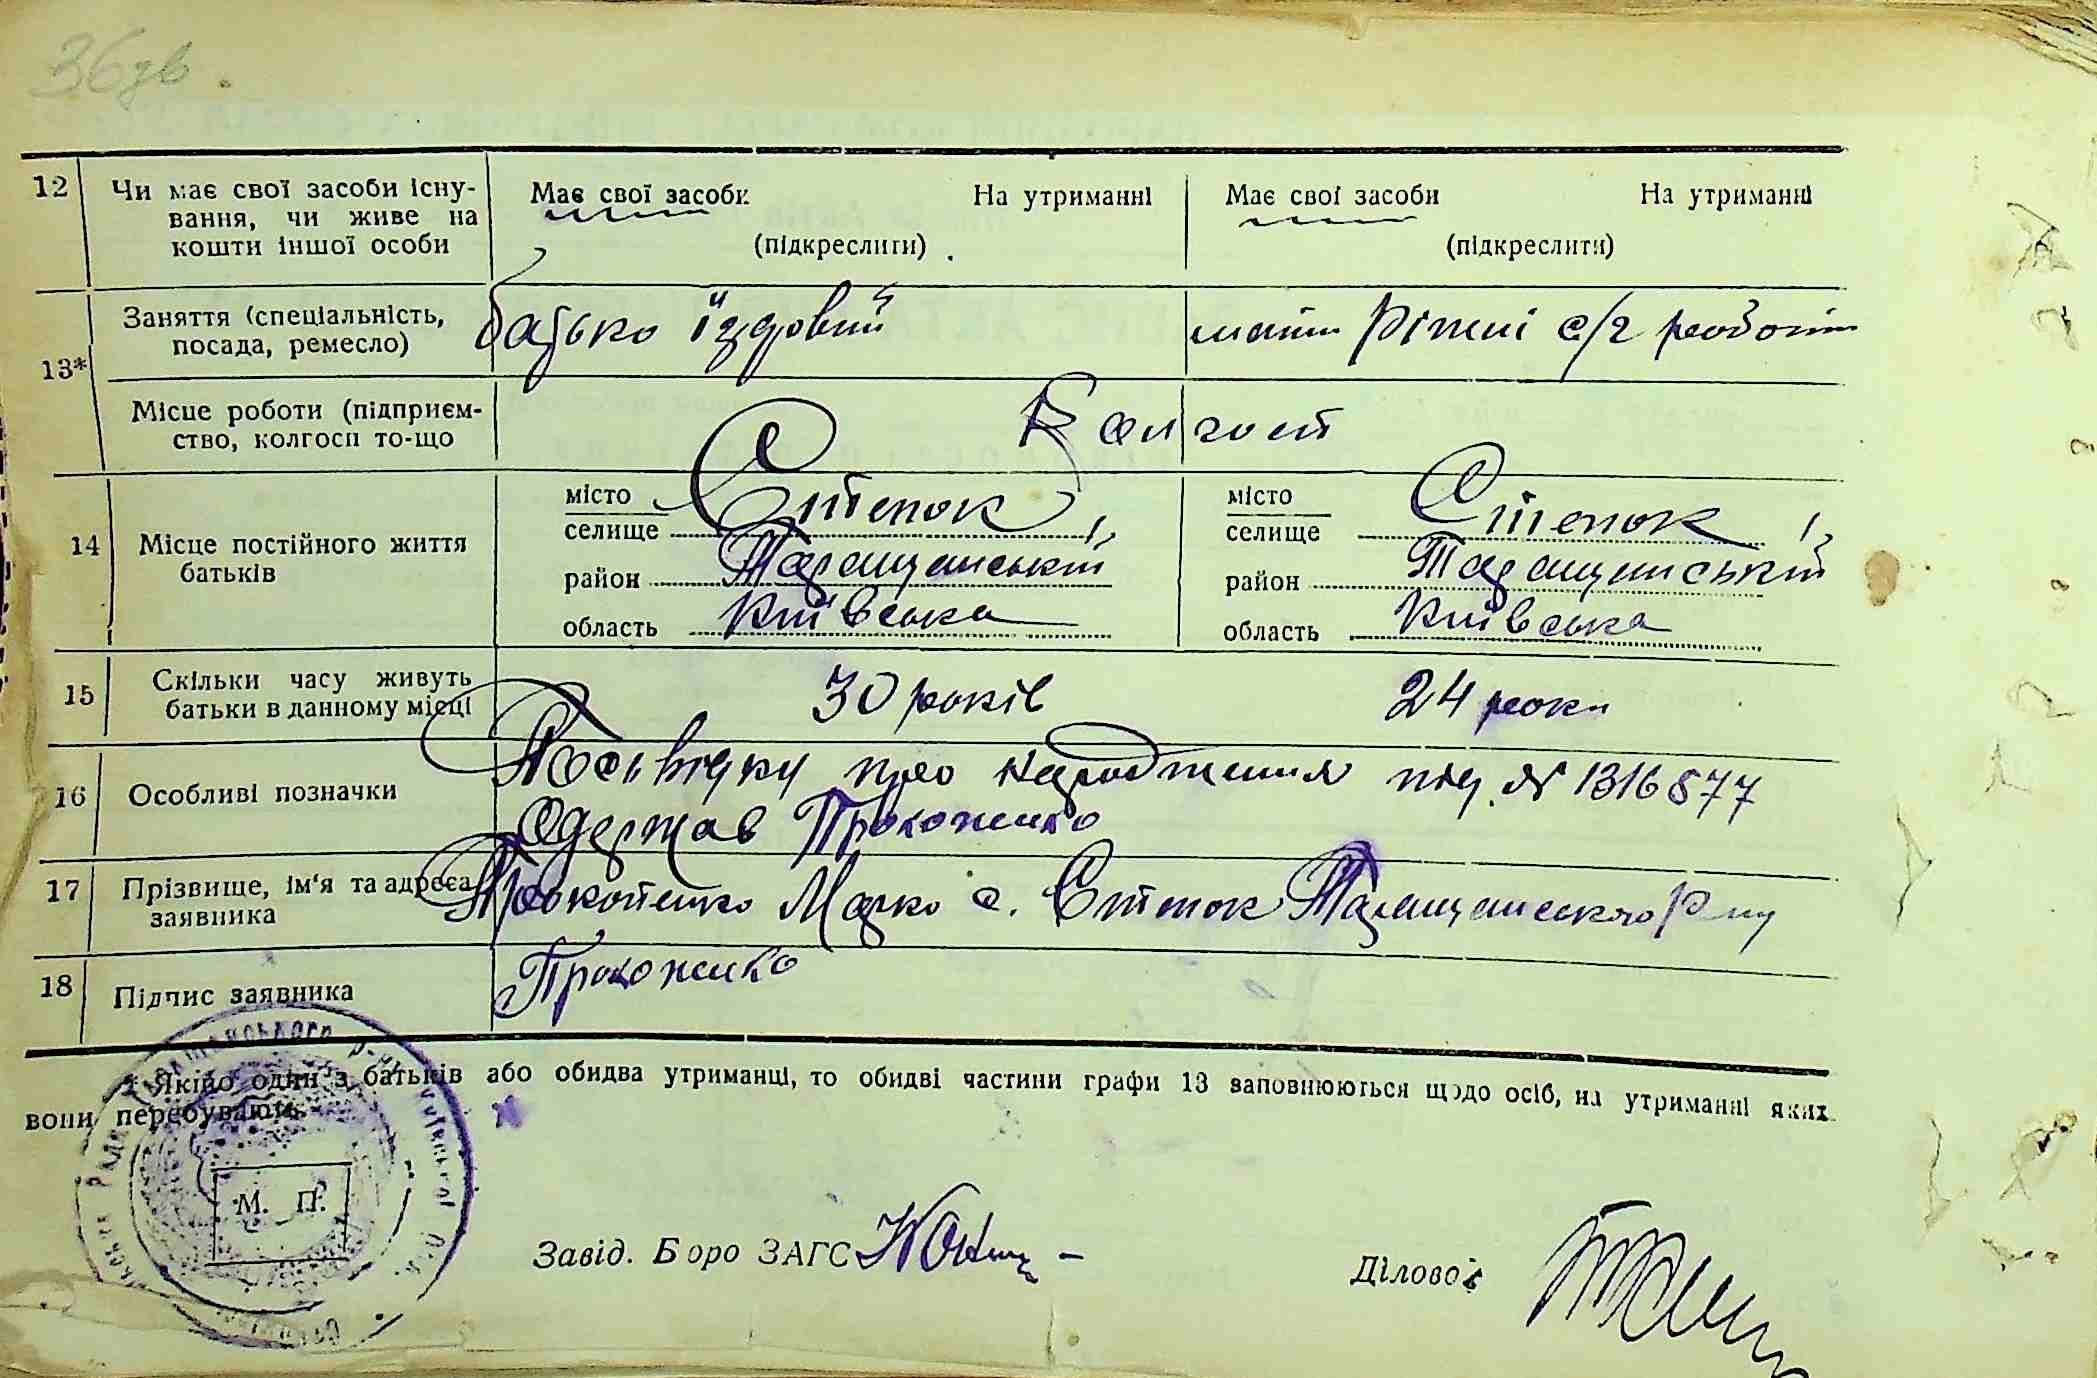 36зв.
12 Чи має свої засоби існу- Має свої засоби На утриманні Має свої засоби На утриманні
вання, чи живе на
кошти іншої особи (підкреслити) (підкреслити)
13* Заняття (спеціальність, батько їздовий мати Ріжні с/г роботи
посада, ремесло)
Місце роботи (підприєм- Колгосп
ство, колгосп то-що
14 Місце постійного життя місто Степок місто Степок
батьків селище селище
район Таращанський район Таращанський
область Київська область Київська
15 Скільки часу живуть 30 років 24 роки
батьки в данному місці
16 Особливі позначки Посьвідку про народження під № 1316877
Одержав Прокопенко
17 Прізвище, ім'я та адреса Прокопенко Марко с. Степок Таращанського Р-ну
заявника
18 Підпис заявника Прокопенко
* Якщо один з батьків або обидва утриманці, то обидві частини графи 13 заповнюються щодо осіб, на утриманні яких
вони перебувають.
М. П.
Завід. Бюро ЗАГС
Діловод